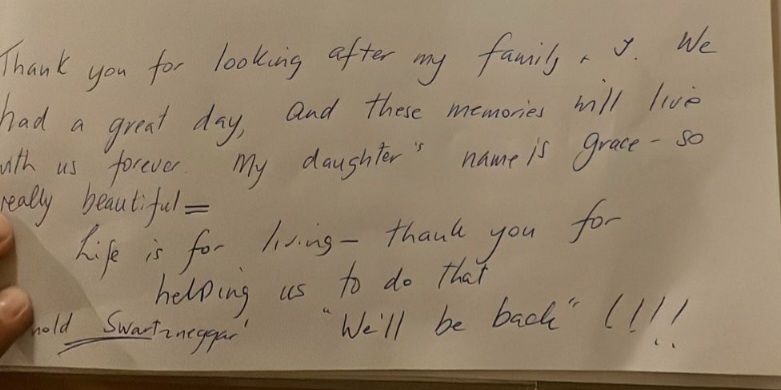 Thank you for looking after my family & I. We
had a great day, and these memories will live
with us forever. My daughter's name is Grace - so
really beautiful =
Life is for living - thank you for
helping us to do that
nold Swartzneggar' "We'll be back" (!!!